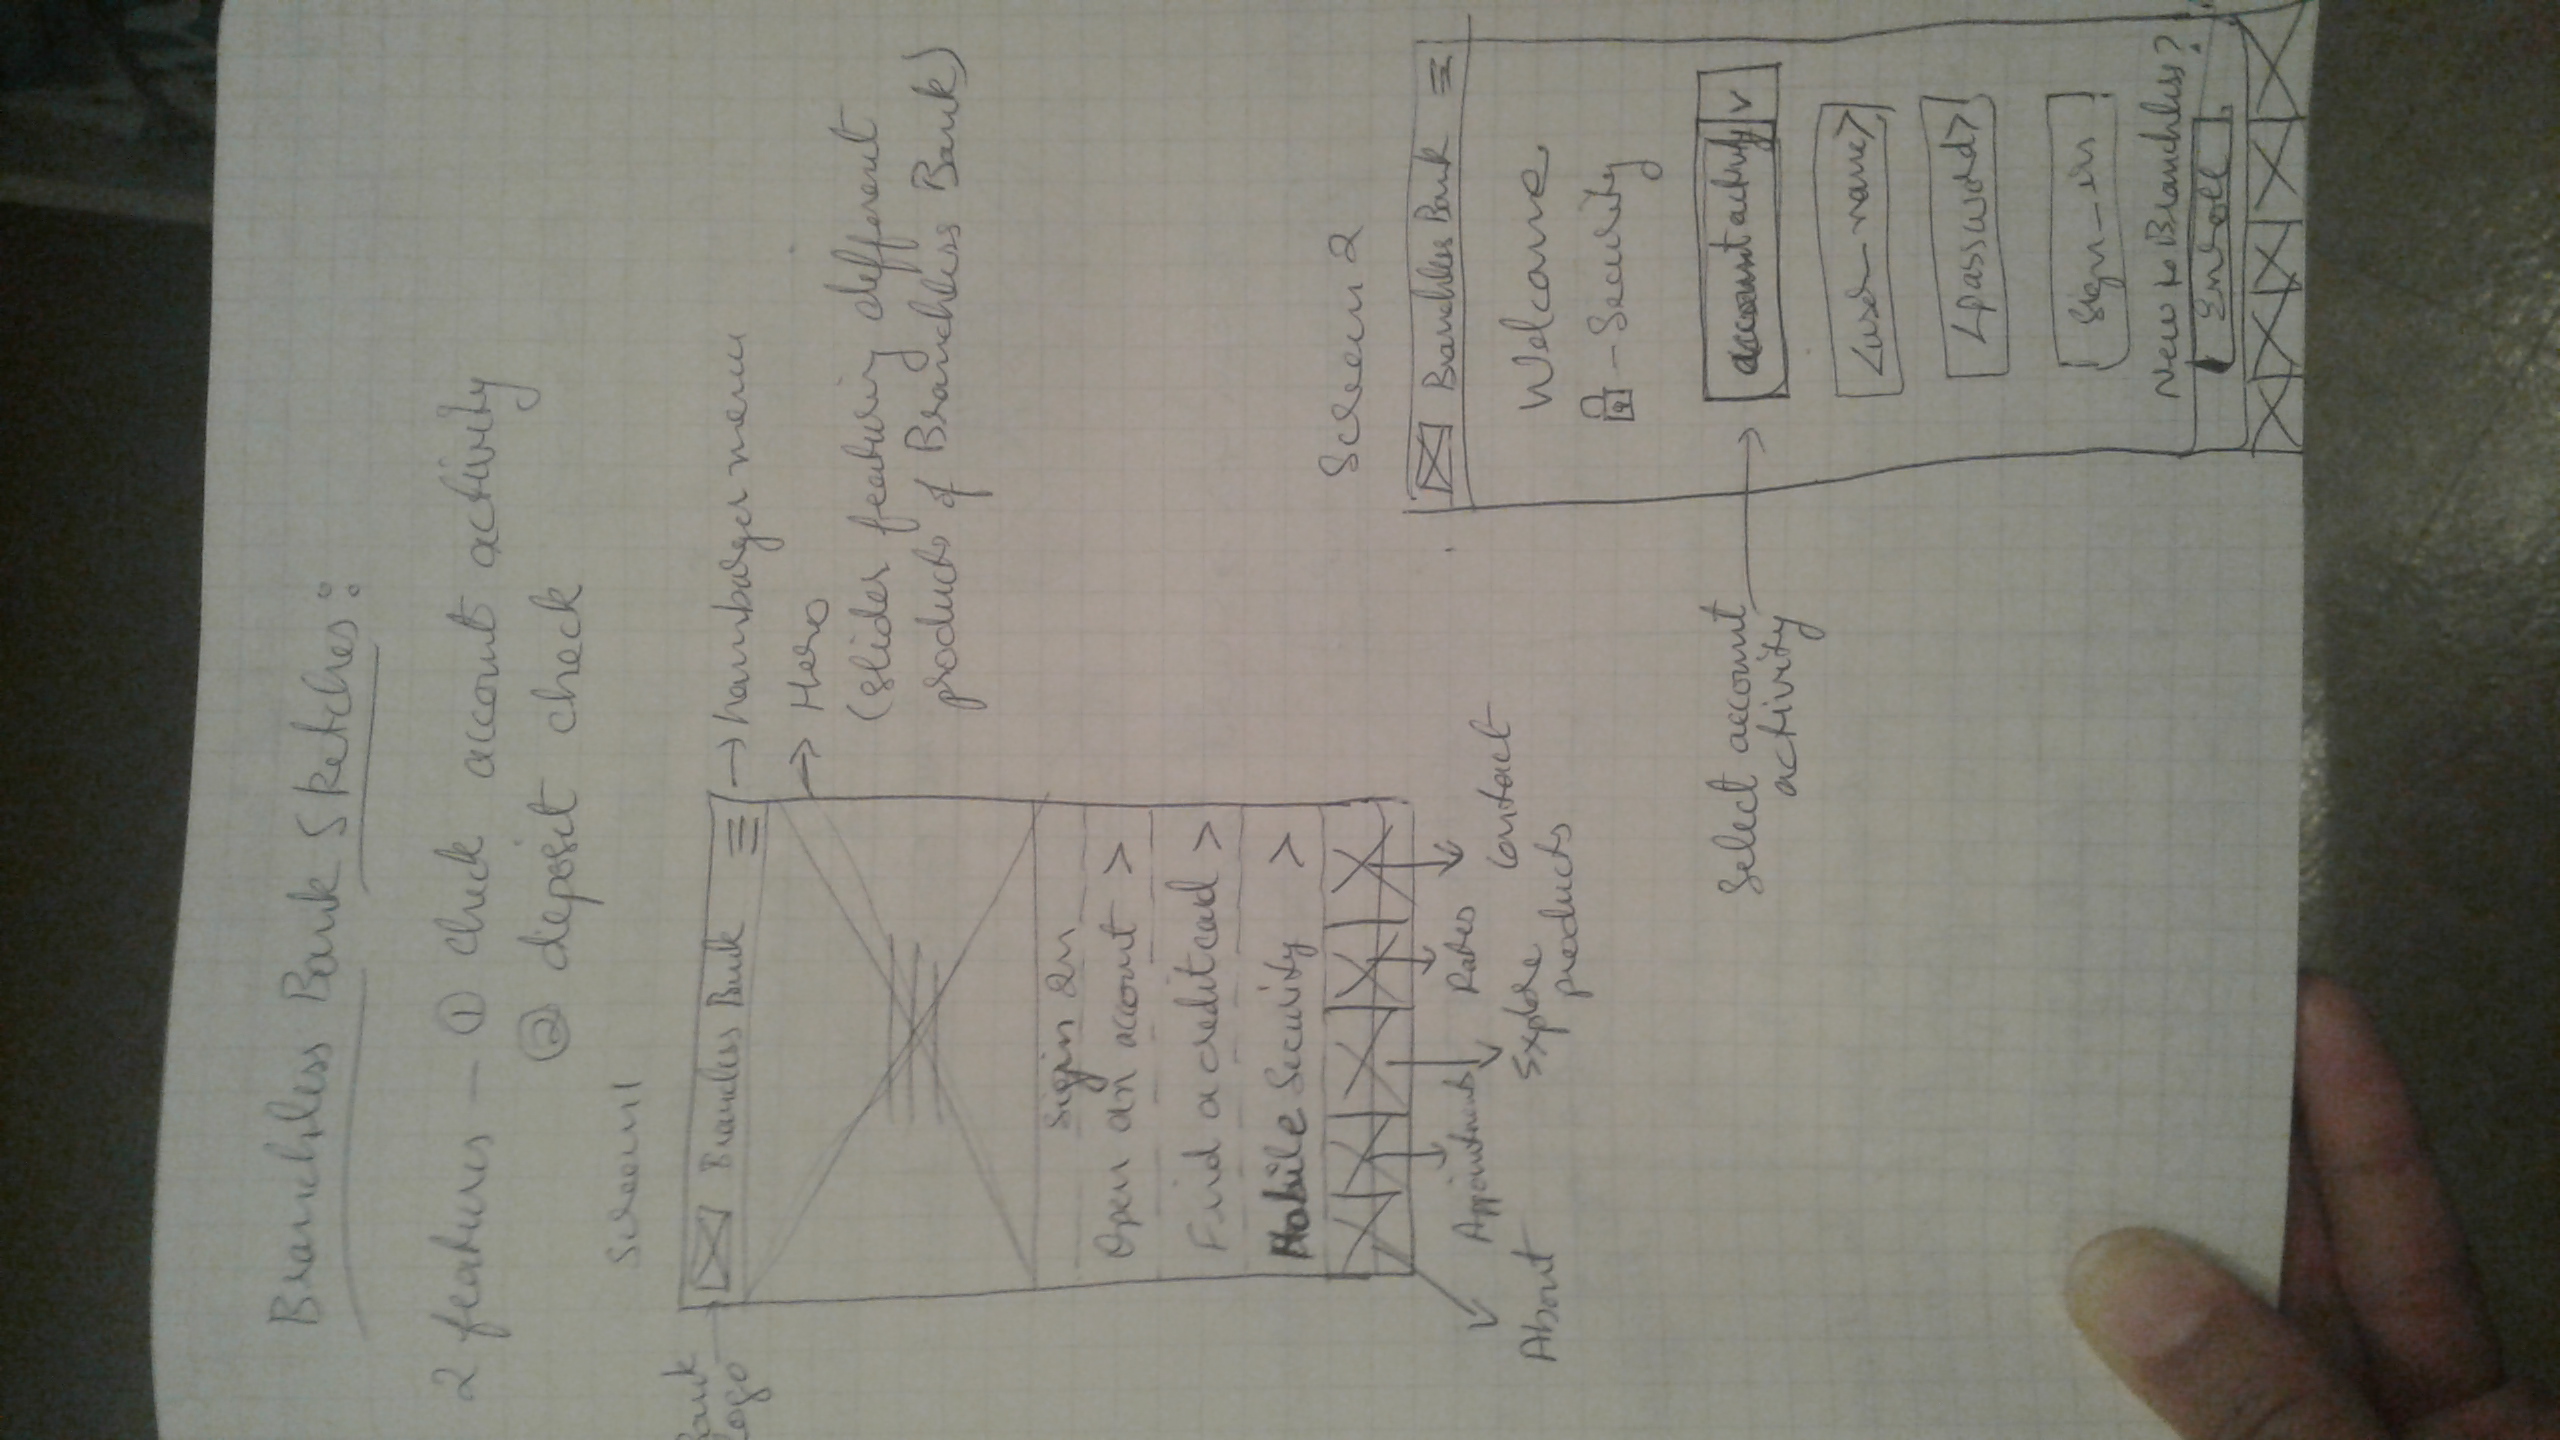 Branchless Bank Sketches:
2 features - ① Check account activity
② deposit check
Screen 1
Bank
Logo
Branchless Bank
→ hamburger menu
→ Hero
(slider featuring different
products of Branchless Bank)
Sigin In
Open an account >
Find a credit card >
Mobile Security >
About
Appointments
Explore
products
Rates
Contact
Screen 2
Branchless Bank
Welcome
- Security
Select account
activity
account activity v
<user_name>
<password>
Sign_in
New to Branchless?
Enroll